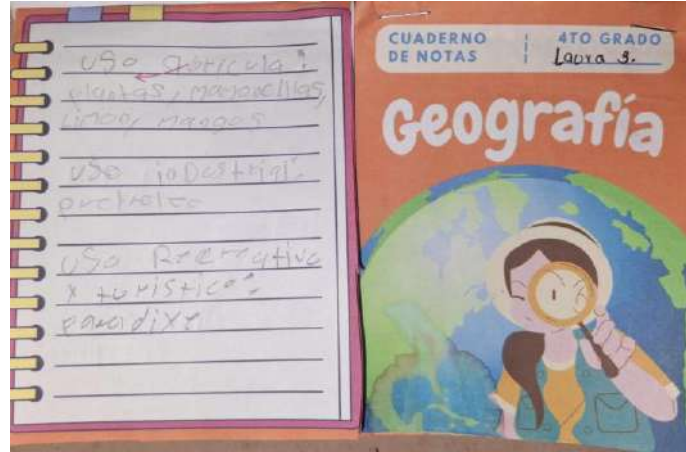 uso abricula:
plantas, manoncillos,
Limon, mangos
uso industrial:
uso Recreativo
turistico:
CUADERNO
DE NOTAS
4TO GRADO
Laura S.
Geografía